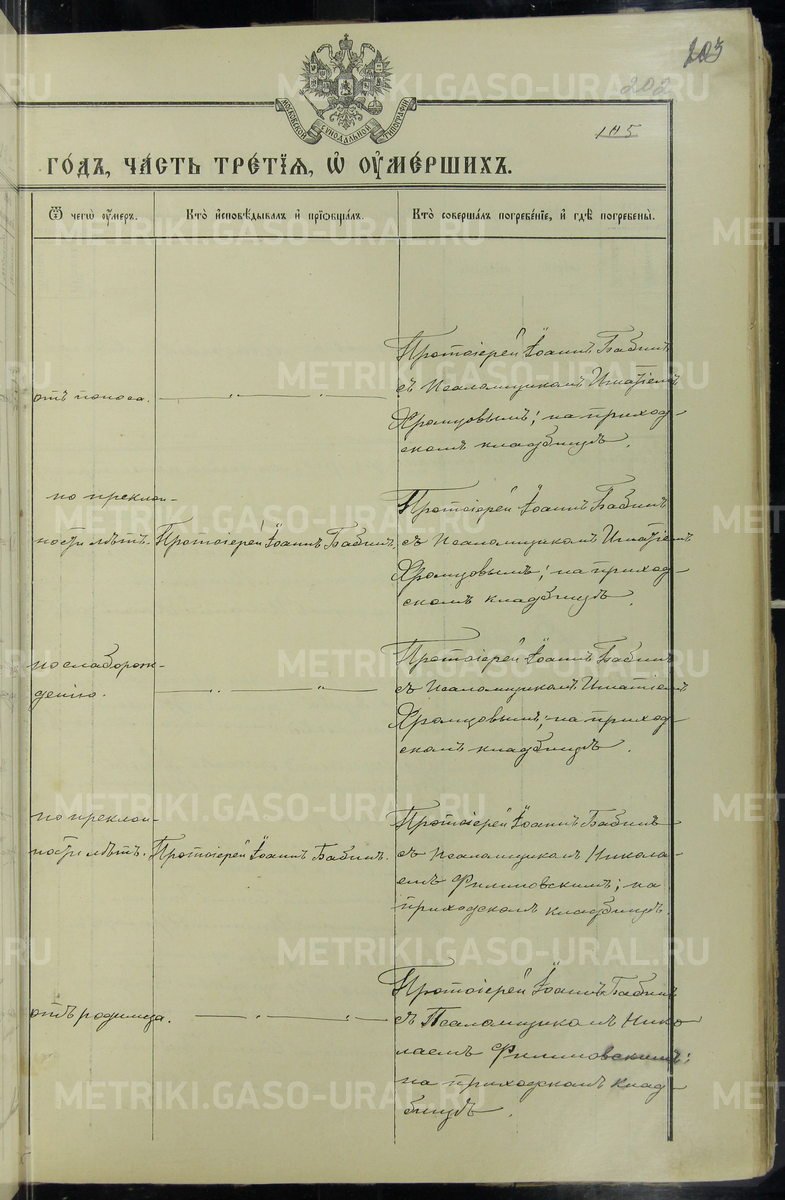 202
105
МОСКОВСКОЙ СѴНОДАЛЬНОЙ ТИПОГРАФІИ
ГОДЪ, ЧАСТЬ ТРЕТІЯ, Ѡ ОУМЕРШИХЪ.
Ѿ чегѡ оумеръ.
Кто исповѣдывалъ и прїѡбщалъ.
Кто совершалъ погребенїе, и гдѣ погребены.
Протоіерей Іоаннъ Бабинъ
отъ поноса.
съ Псаломщикомъ Игнатіемъ
Храмцовымъ; на приход-
скомъ кладбищѣ.
по преклон-
ности лѣтъ.
Протоіерей Іоаннъ Бабинъ.
Протоіерей Іоаннъ Бабинъ
съ Псаломщикомъ Игнатіемъ
Храмцовымъ; на приход-
скомъ кладбищѣ.
по слаборож-
денію.
Протоіерей Іоаннъ Бабинъ
съ Псаломщикомъ Игнатіемъ
Храмцовымъ; на приход-
скомъ кладбищѣ.
по преклон-
ности лѣтъ.
Протоіерей Іоаннъ Бабинъ.
Протоіерей Іоаннъ Бабинъ
съ Псаломщикомъ Никола-
емъ Филиновскимъ; на
приходскомъ кладбищѣ.
отъ родимца.
Протоіерей Іоаннъ Бабинъ
съ Псаломщикомъ Нико
лаемъ Филиновскимъ:
на приходскомъ клад-
бищѣ.
METRIKI.GASO-URAL.RU